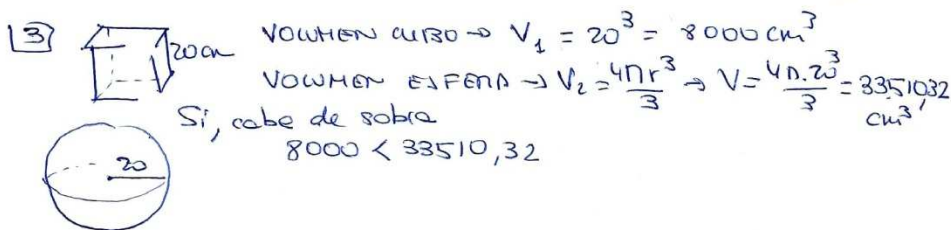 3
20cm
VOLUMEN CUBO → V₁ = 20³ = 8000 cm³
VOLUMEN ESFERA → V₂ = 4πr³/3 → V = 4π.20³/3 = 33510,32 cm³
Si, cabe de sobra
8000 < 33510,32
20